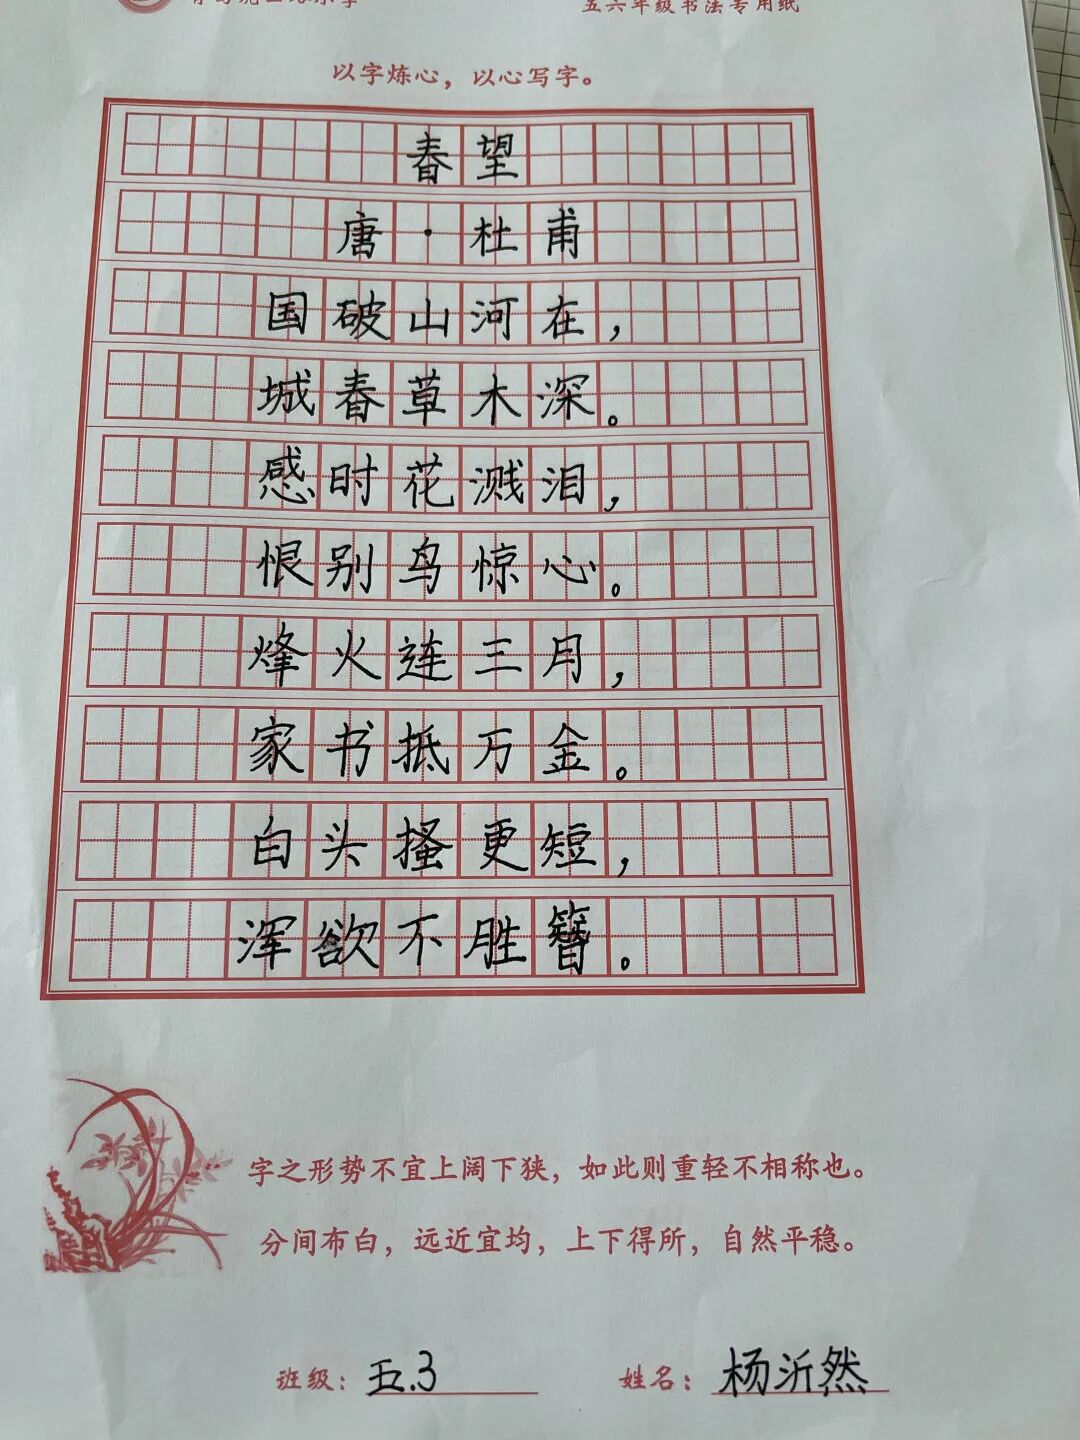 五六年级书法专用纸
以字炼心，以心写字。
春望
唐·杜甫
国破山河在，
城春草木深。
感时花溅泪，
恨别鸟惊心。
烽火连三月，
家书抵万金。
白头搔更短，
浑欲不胜簪。
字之形势不宜上阔下狭，如此则重轻不相称也。
分间布白，远近宜均，上下得所，自然平稳。
班级：五.3
姓名：杨沂然